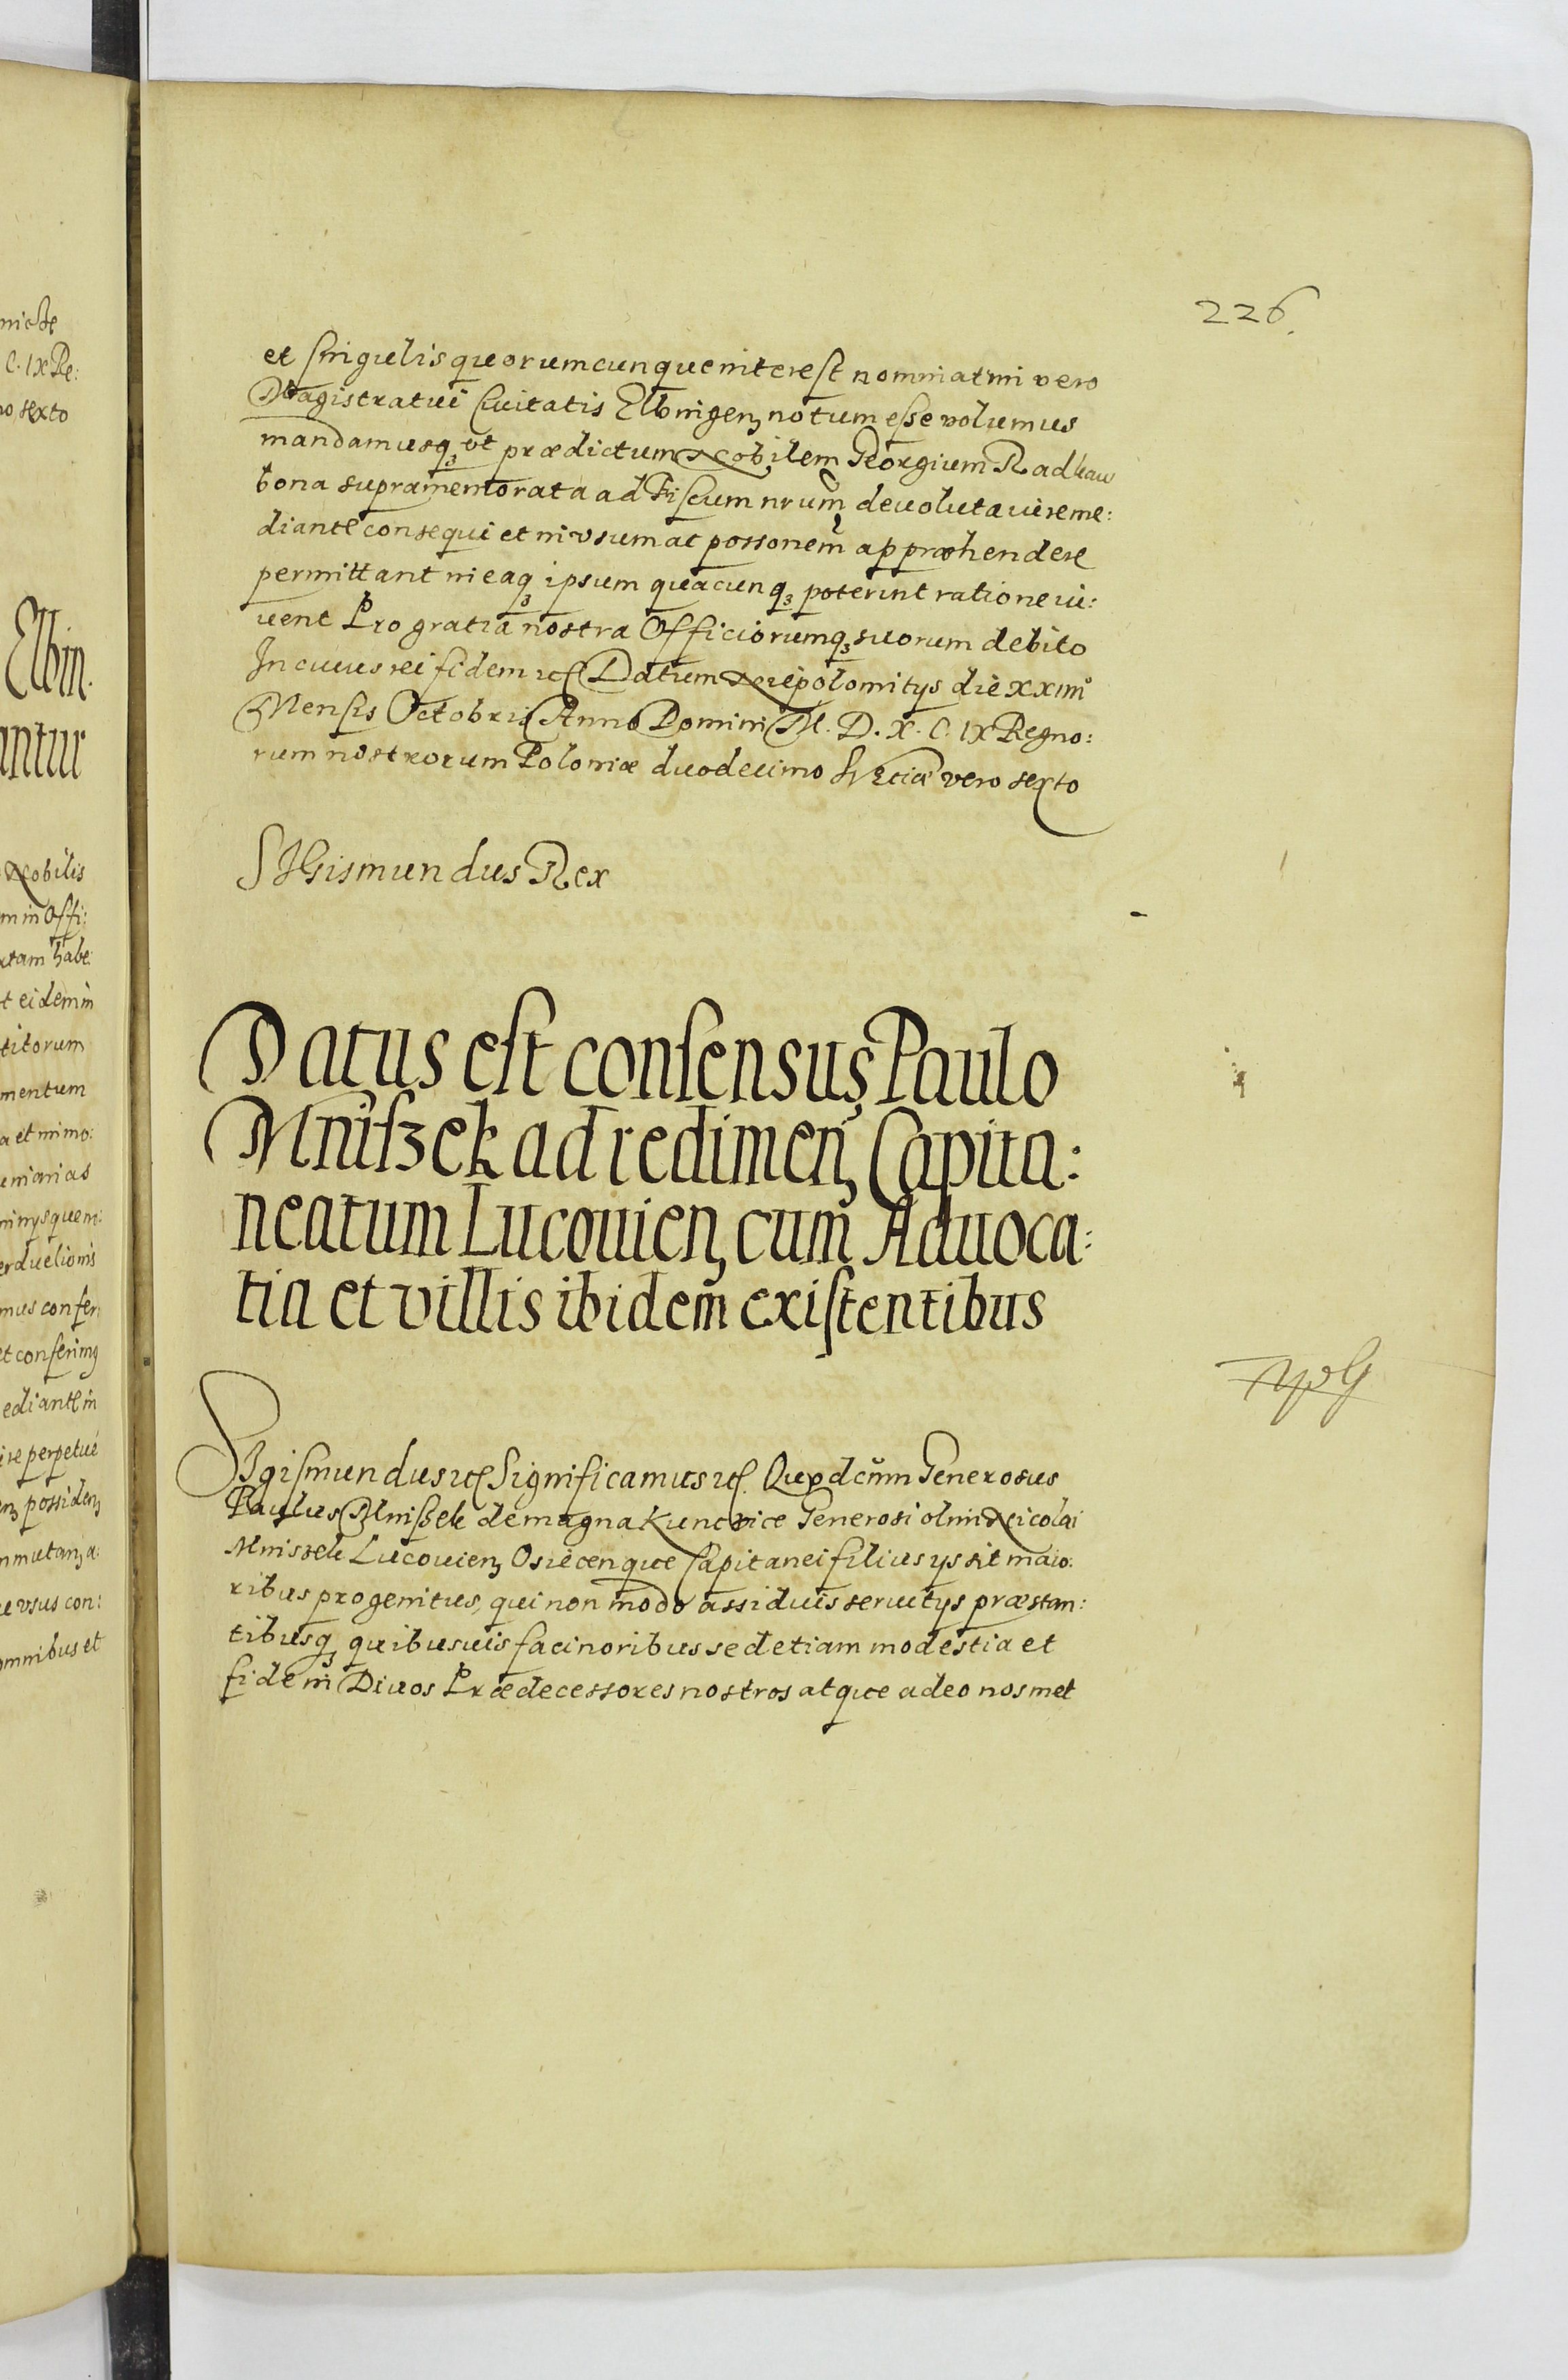 226.
et singulis quorumcunque interest nominatim vero
Magistratui Civitatis Elbingen notum esse volumus
mandamusq, vt prædictum Nobilem Georgium Radkau
bona supramemorata ad Fiscum nrum devoluta vi re me:
diante consequi et in vsum ac possonem apprœhendere
permittant in eaq ipsum quacunq poterint ratione iu:
uent Pro gratia nostra Officiorumq suorum debito
In cuius rei fidem etc Datum Niepolomitys die XXIIII
Mensis Octobris Anno Domini M. D. X. C. IX Regno:
rum nostrorum Poloniæ duodecimo Sveciæ vero sexto
SIGismundus Rex
Datus est consensus Paulo
Mniszek ad redimen Capita:
neatum Lucouien cum Aduoca:
tia et villis ibidem existentibus
SIgismundus etc Significamus etc. Quod cum Generosus
Paulus Mniszek de magna Kunczice Generosi olim Nicolai
Mniszek Lucouien Osiecenque Capitanei filius ys sit maio:
ribus progenitus, qui non modo assiduis seruitys præstan:
tibusq quibusuis facinoribus sed etiam modestia et
fide in Diuos Prædecessores nostros atque adeo nosmet